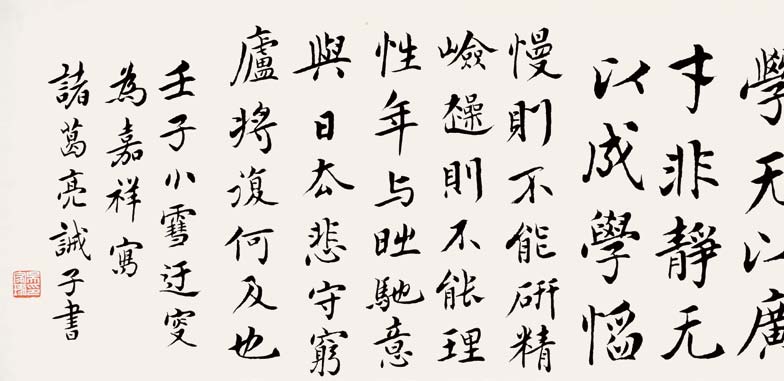 學无以廣
才非靜无
以成學慆
慢則不能研精
嶮趮則不能理
性年与時馳意
與日去悲守窮
廬將復何及也
壬子小雪迂叟
為嘉祥寫
諸葛亮誡子書